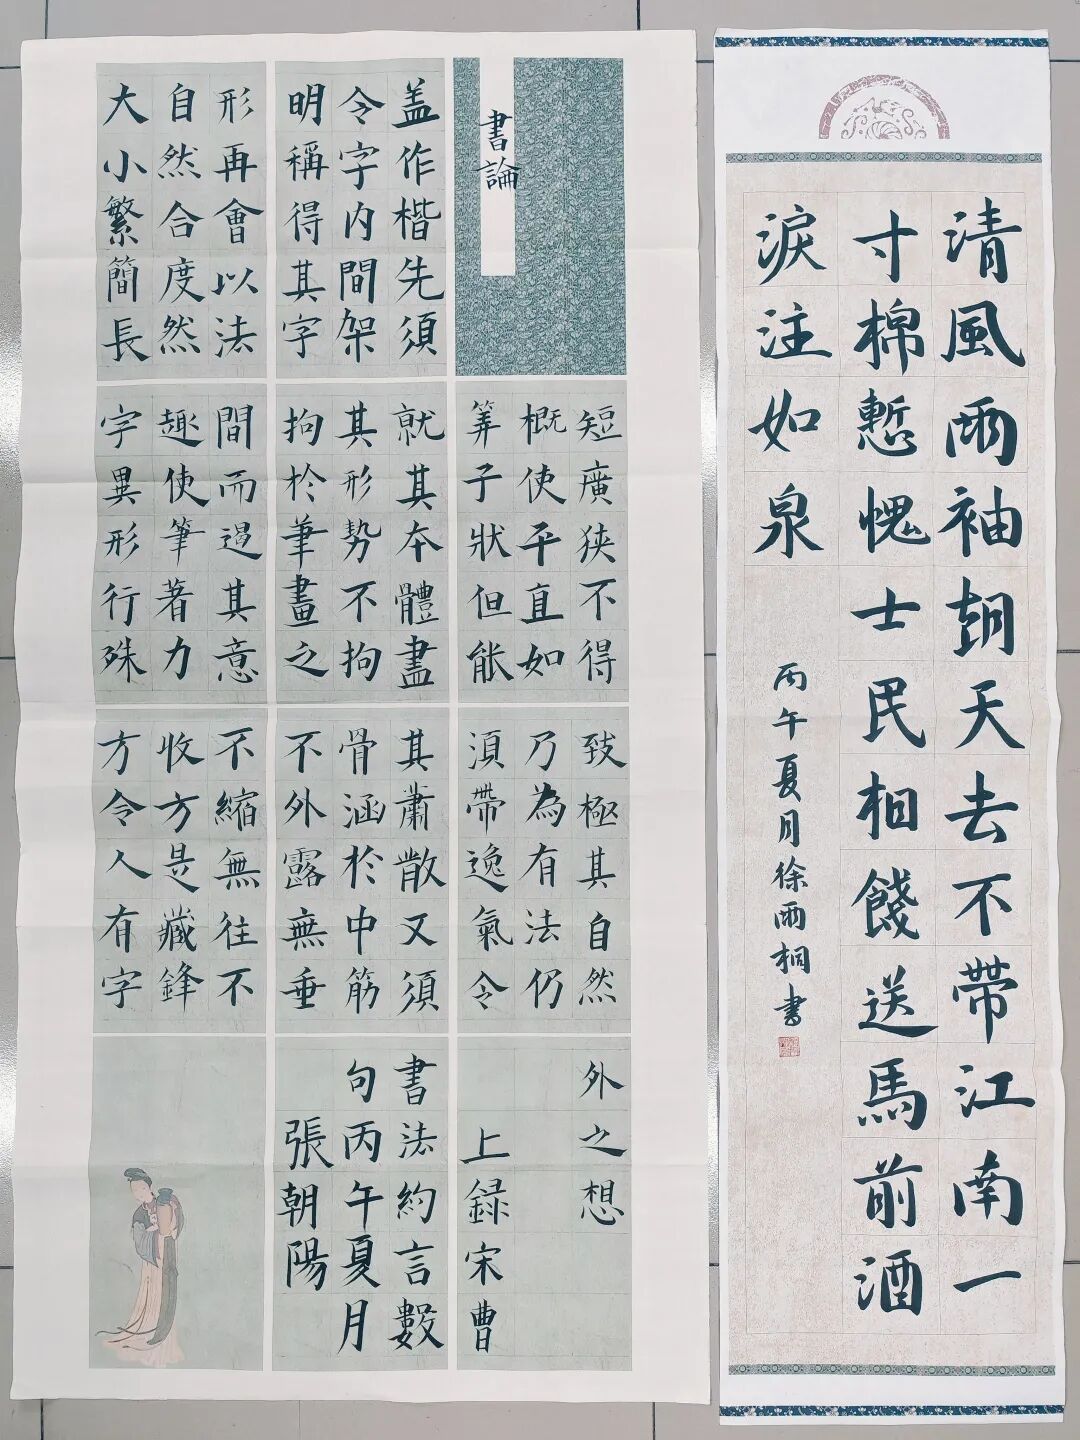 書論
盖作楷先須
令字内間架
明稱得其字
形再會以法
自然合度然
大小繁簡長
短廣狹不得
概使平直如
筭子狀但能
就其本體盡
其形勢不拘
拘於筆畫之
間而遏其意
趣使筆著力
字異形行殊
致極其自然
乃為有法仍
湏帶逸氣令
其蕭散又須
骨涵於中筋
不外露無垂
不縮無往不
收方是藏鋒
方令人有字
外之想
上録宋曹
書法約言數
句丙午夏月
張朝陽
清風兩袖朝天去不帶江南一
寸棉慙愧士民相餞送馬前酒
淚注如泉
丙午夏月徐雨桐書